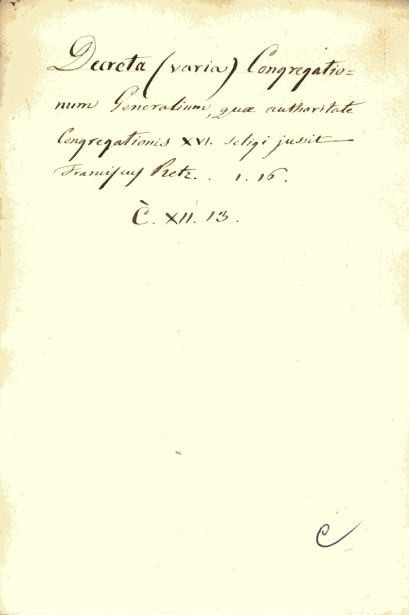 Decreta (varia) Congregatio=
num Generalium, quæ authoritate
Congregationis XVI. seligi jussit
Franciscus Retz. . 1. 16.
Č. XII. 13.
C